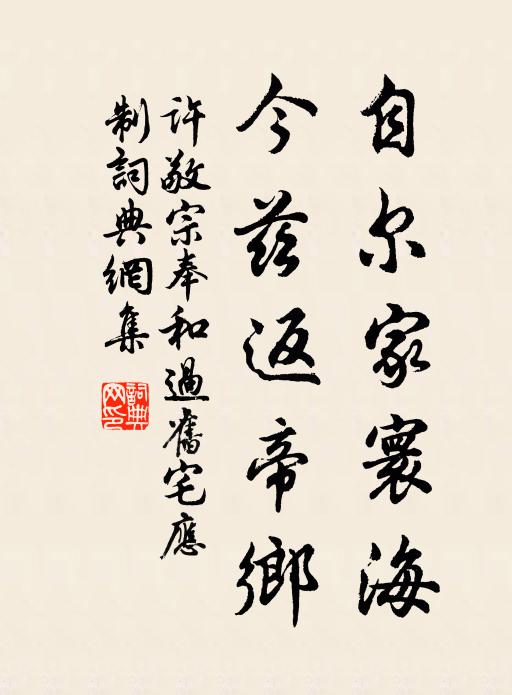 自尔家寰海
今茲返帝鄉
許敬宗奉和過舊宅應
制詞典網集
詞典
网印